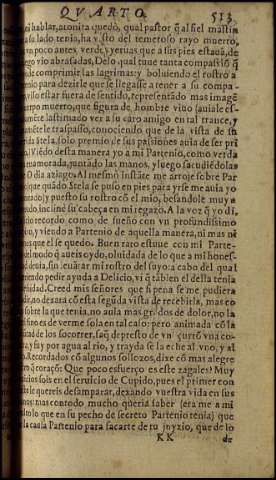 QVARTO. 513
mi hablar, atonita quedo, qual pastor q̃ al fiel mastin
a su lado tenia, ha visto del temeroso rayo muerto,
vn poco antes, verdes, yeruas que a sus pies estaua, de
vio abrasadas, Delo qual tuue tanta compassiõ q̃
de comprimir las lagrimas: y boluiendo el rostro a
nio para dezirle que se llegasse a tener a su compa-
vilo estar fuera de sentido, representãdo mas imagẽ
cuerpo muerto, que figura de hombre viuo (auiale es-
mete lastimado ver a su caro amigo en tal trance, y
mẽte le traspassò, conociendo que de la vista de su
Stela, solo premio de sus passiones auia de ser pri
Viẽdo desta manera yo a mi Partenio, como verda
namorada, juntãdo las manos, y luego sacudiẽdolas
O dia aziago. Al mesmo instãte me arroje sobre Par
que quãdo Stela se puso en pies para yrse me auia yo
tado) y puesto su rostro cõ el mio, besandole muy a
do, incline su cabeça en mi regazo. A la voz q̃ yo di,
io recordo como de sueño con vn profundissimo
ro, y viendo a Partenio de aquella manera, ni mas ni
nos que el se quedo. Buen raro estuue con mi Parte-
modo q̃ aueis oydo, oluidada de lo que a mi hones-
deuia, sin euitar mi rostro del suyo: a cabo del qual
endo pedir ayuda a Delicio, vi q̃ tãbien el della tenia
sidad. Creed mis señores que si pena se me pudiera
dir, no dexarà cõ esta segũda vista de recebirla, mas co
sobre la que tenia, no aula mas grados de dolor, no la
sino es de verme sola en tal caso: pero animada cõ la
dad de los socorrer, saq̃ de presto de vn çurrõ vna co-
y fuy por agua al rio, y trayda se la eche al vno, y al
Recordados cõ algunos sollozos, dixe cõ mas alegre
q̃ coraçõ: Que poco esfuerço es este zagales? Muy
cios sois en el seruicio de Cupido, pues el primer con
le quereis desamparar, dexando vuestra vida en sus
nos: mas contodo mucho queria saber (era me a mi
lo que en su pecho de secreto Partenio tenia) que
la causa Partenio para sacarte de tu juyzio, que de lo
KK de